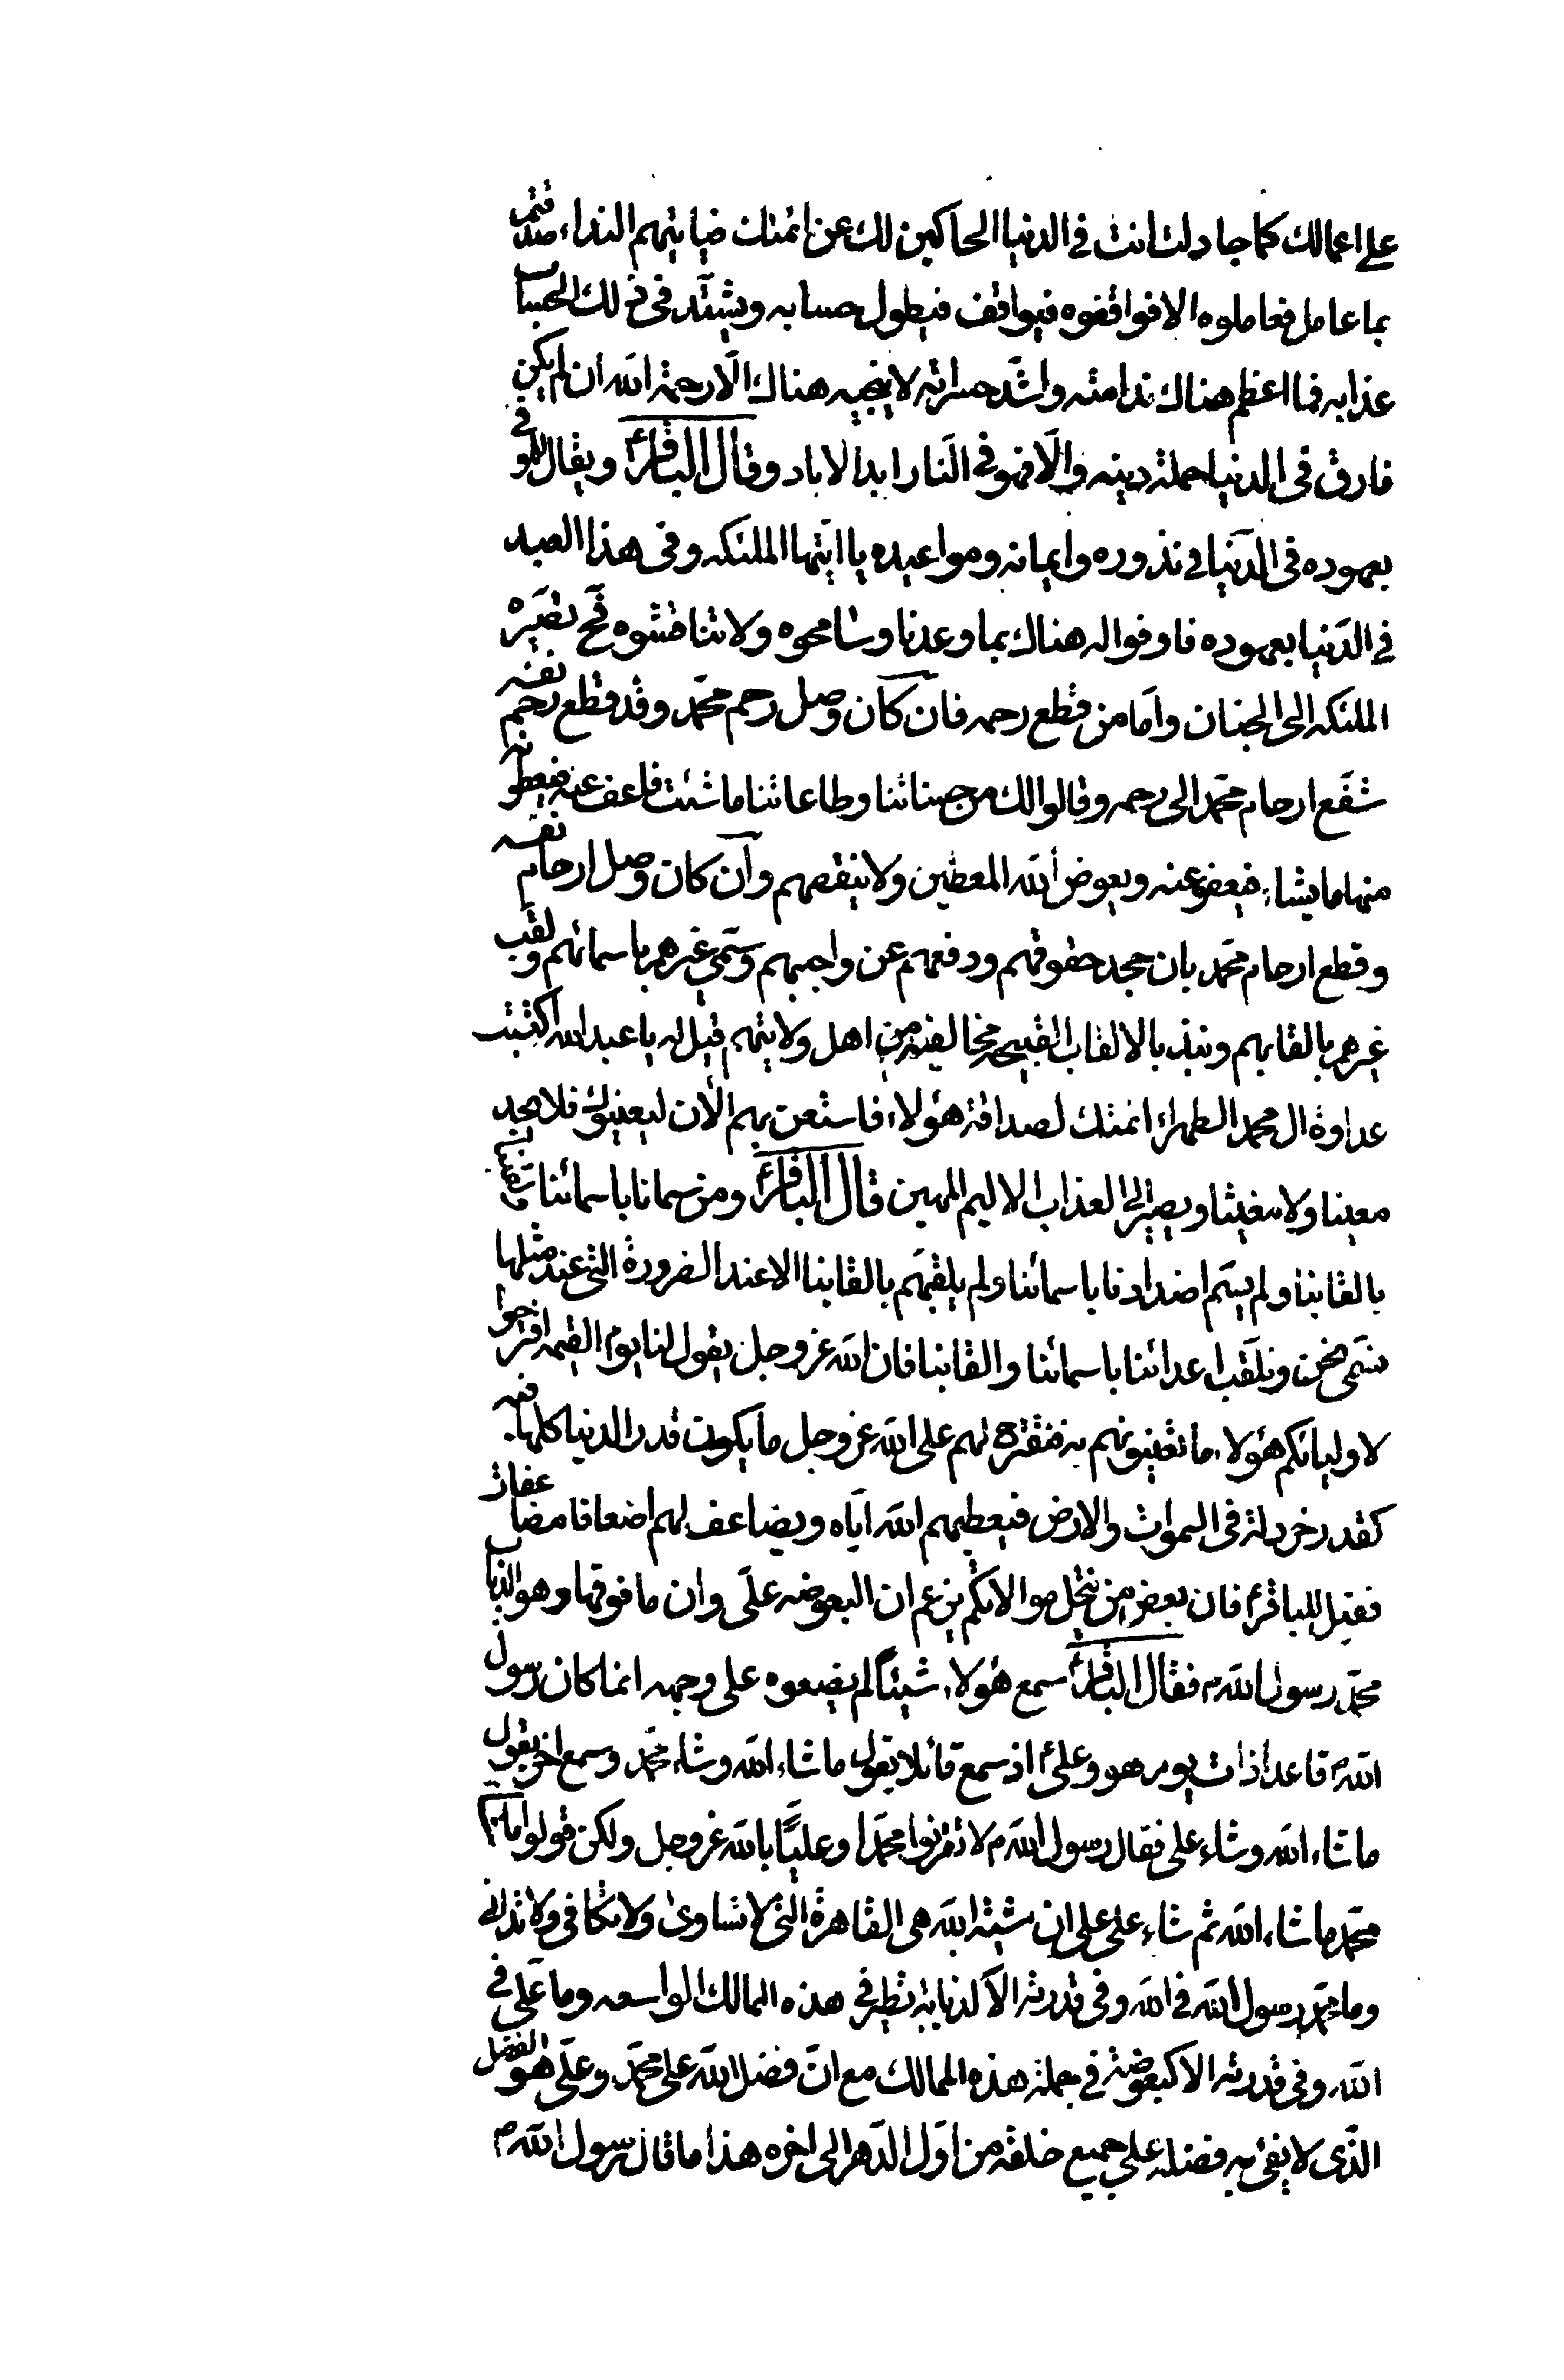 على اعمالك كما جادلت انت فى الدنيا الحاكين لك عن ائمتك فياتيهم النداء صدقتم
بما عامل فعاملوه الا فواقفوه فيواقف فيطول حسابه ويشتد فى ذلك الحساب
عذابه فما اعظم هناك ندامته واشد حسراته لا ينجيه هناك الا رحمة الله ان لم يكن
فارق فى الدنيا جملة دينه والا فهو فى النار ابدا الاباد وقال الباقرؑ ويقال للموفى
بعهوده فى الدنيا فى نذوره وايمانه ومواعيده يا ايتها الملئكه وفى هذا العبد
فى الدنيا بعهوده فاوفوا له هناك بما وعدنا وسامحوه ولا تناقشوه فح تصيره
الملئكه الى الجنان واما من قطع رحمه فان كان وصل رحم محمد وقد قطع رحم نفسه
شفع ارحام محمد الى رحمه وقالوا لك من حسناتنا وطاعاتنا ما شئت فاعف عنه فيعطونه
منها ما يشاء فيعفو عنه ويعوض الله المعطين ولا ينقصهم وان كان وصل ارحام نفسه
وقطع ارحام محمد بان جحد حقوقهم ودفعهم عن واجبهم وسمى غيرهم باسمائهم ولقب
غيرهم بالقابهم ونبذ بالالقاب القبيحه مخالفيه من اهل ولايتهم قيل له يا عبد الله اكتسبت
عداوة ال محمد الطهر ائمتك لصداقة هؤلاء فاستعن بهم الان ليعينوك فلا يجد
معينا ولا مغيثا ويصير الى العذاب الاليم المهين قال الباقرؑ ومن سمانا باسمائنا
بالقابنا ولم يسم اضدادنا باسمائنا ولم يلقبهم بالقابنا الا عند الضرورة التى عند مثلها
نسمى نحن ونلقب اعدائنا باسمائنا والقابنا فان الله عز وجل يقول لنا يوم القيمه اقترحوا
لاوليائكم هؤلاء ما تعينونهم به فنقترح لهم على الله عز وجل ما يكون قدر الدنيا كلها فيه
كقدر خردلة فى السموات والارض فيعطيهم الله اياه ويضاعف لهم اضعافا مضاعفات
فقيل للباقرؑ فان بعض من ينتحل موالاتكم يزعم ان البعوضه على وان ما فوقها وهو الذباب
محمد رسول الله ص فقال الباقرؑ سمع هؤلاء شيئا لم يضعوه على وجهه انما كان رسول
الله ص قاعدا ذات يوم هو وعلىؑ اذ سمع قائلا يقول ما شاء الله وشاء محمد وسمع اخر يقول
ما شاء الله وشاء على فقال رسول الله ص لا تقرنوا محمدا وعليا بالله عز وجل ولكن قولوا
محمد ما شاء الله ثم شاء على على ان مشية الله هى القاهرة التى لا تساوى ولا تكافى ولا تدانى
وما محمد رسول الله فى الله وفى قدرته الا كذبابة تطير فى هذه الممالك الواسعه وما على فى
الله وفى قدرته الا كبعوضة فى جملة هذه الممالك مع ان فضل الله على محمد وعلى هو الفضل
الذى لا يفى به فضله على جميع خلقه من اول الدهر الى اخره هذا ما قال رسول الله ص